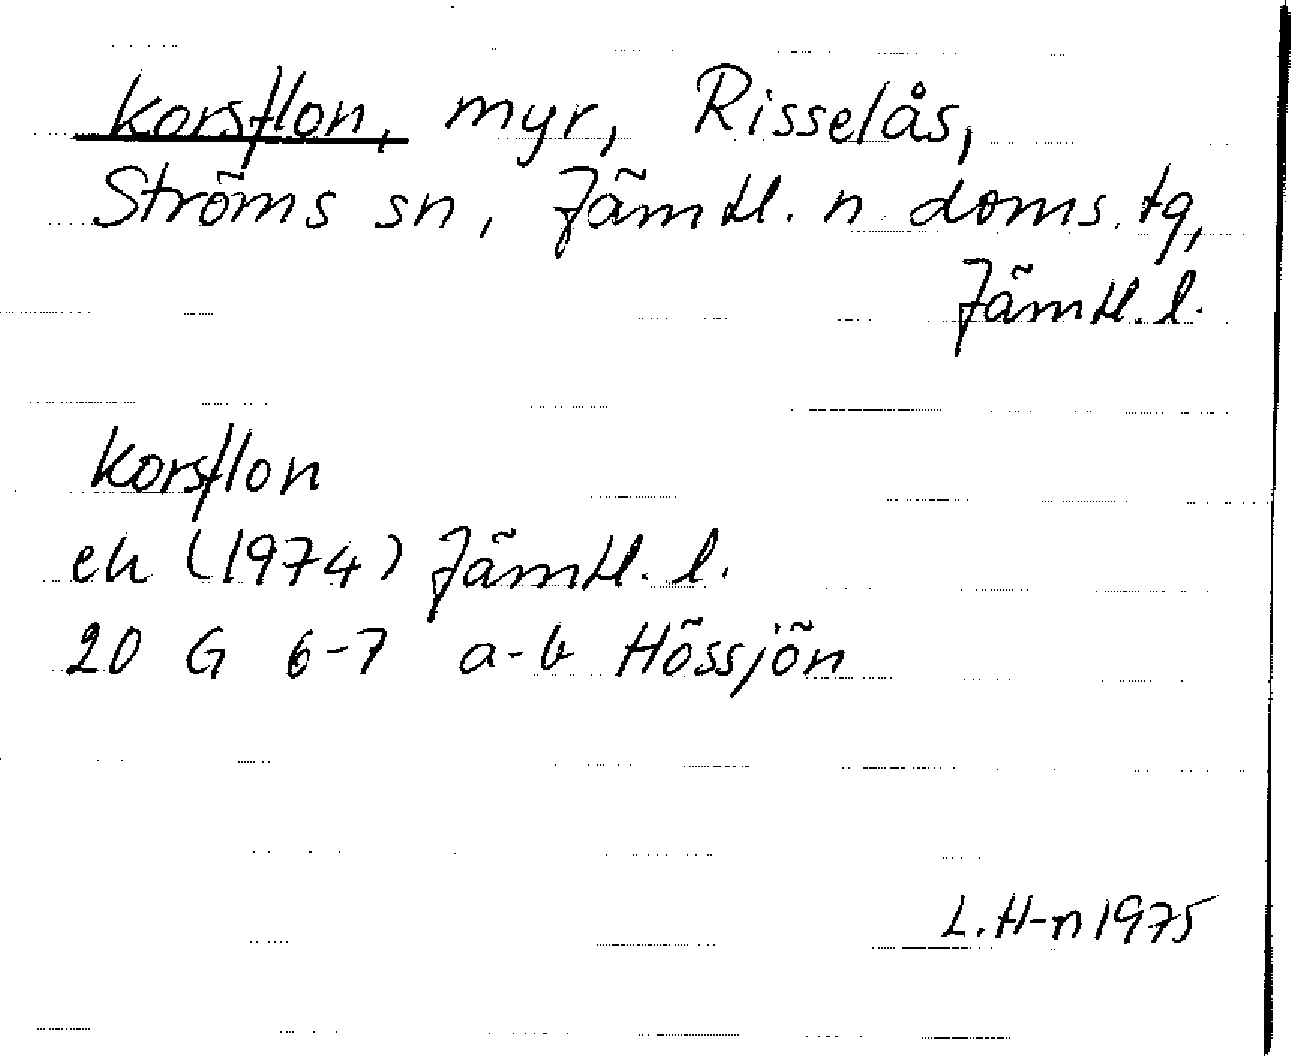 Korsflon, myr, Risselås,
Ströms sn, Jämtl. n doms. tg,
Jämtl. l.
Korsflon
ek (1974) Jämtl. l.
20 G 6-7 a-b Hössjön
L. H-n 1975